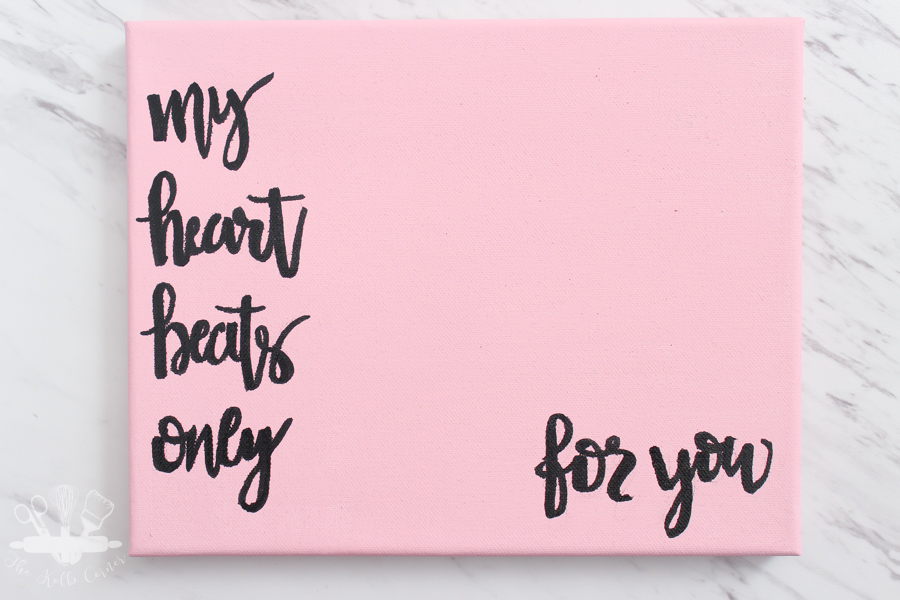 my
heart
beats
only
for you
The Kello Corner